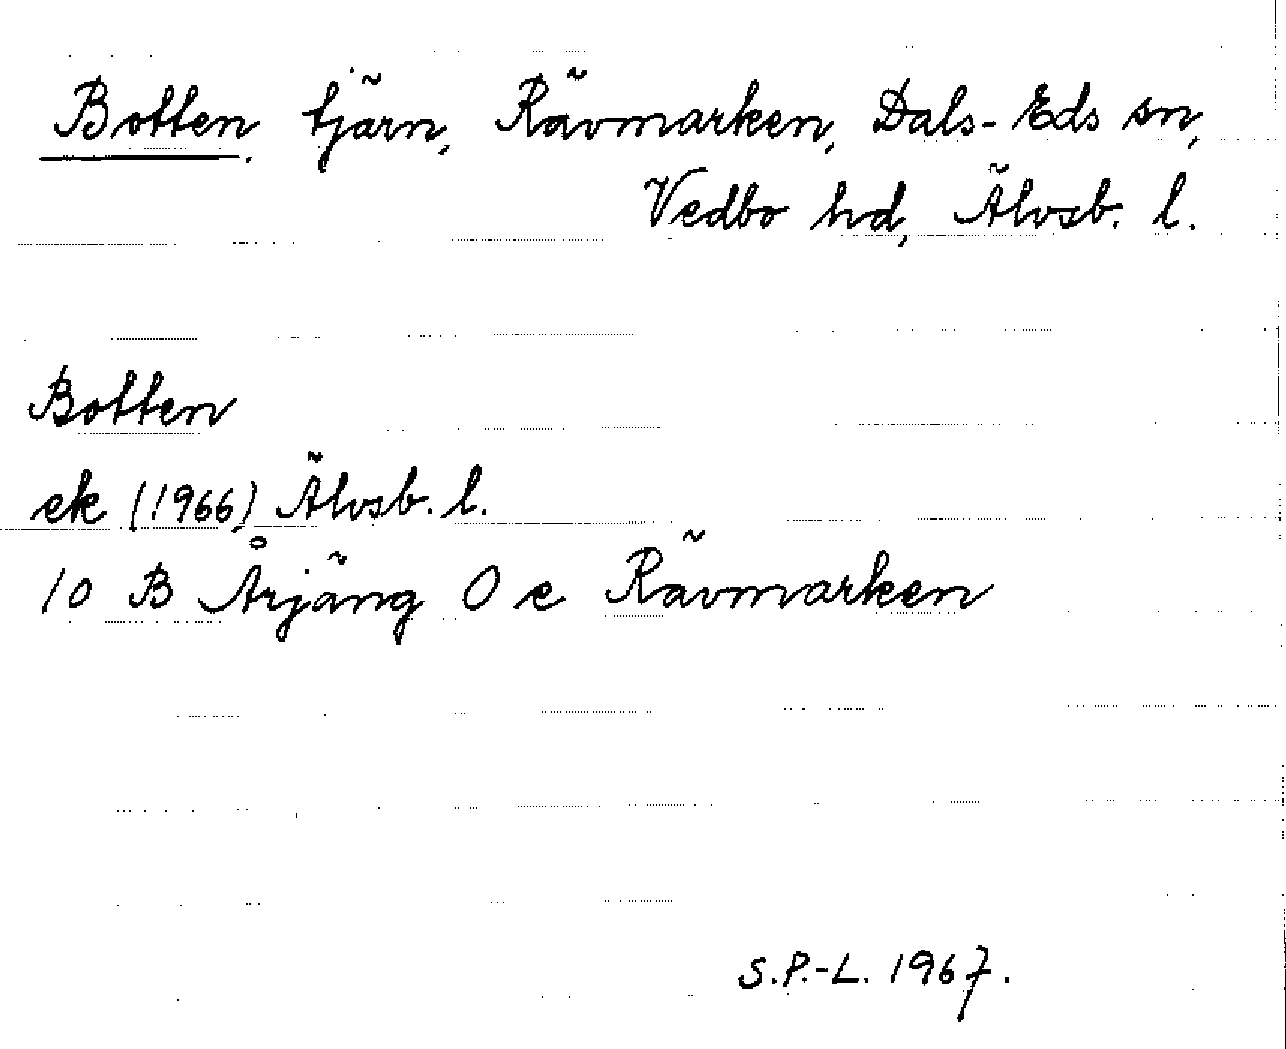 Botten, tjärn, Rävmarken, Dals-Eds sn,
Vedbo hd, Älvsb. l.
Botten
ek (1966) Älvsb. l.
10 B Årjäng 0 e Rävmarken
S.P.-L. 1967.